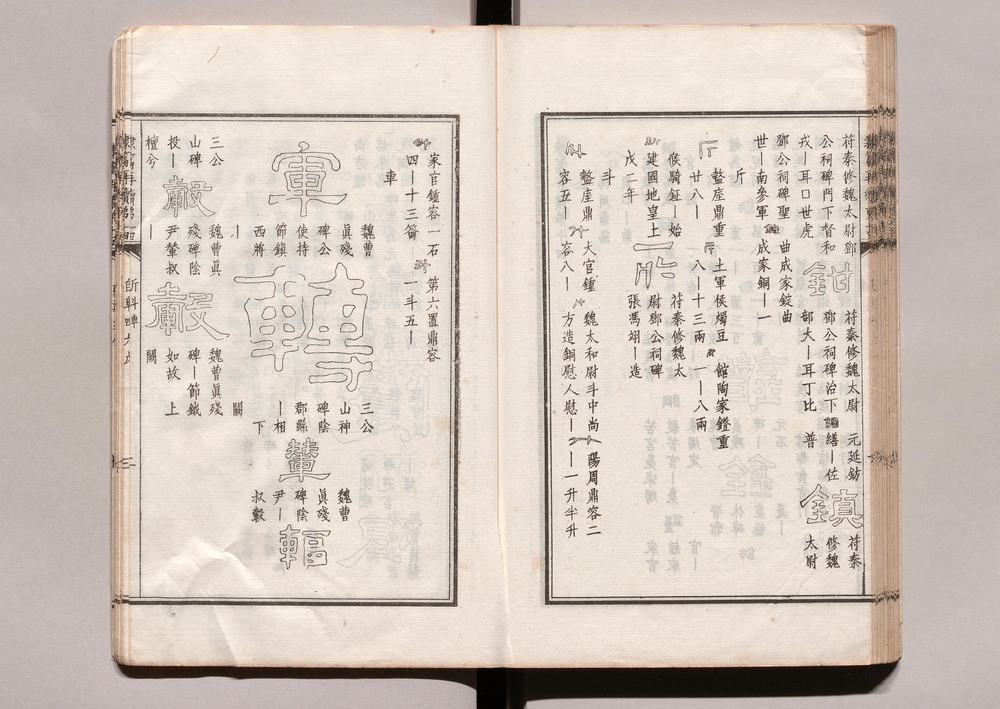 苻秦修魏太尉鄧
公祠碑門下督和
戎丨耳口世虎
鉗
苻秦修魏太尉
鄧公祠碑治下
部大丨耳丁比
元延鈁
繕丨佐
普
鎮
苻秦
修魏
太尉
鄧公祠碑聖
世丨南參軍
曲成家錠曲
成家銅丨一
斤
盩厔鼎重
廿八丨
土軍侯燭豆
八丨十三兩
館陶家鐙重
一丨八兩
候騎鉦丨始
建國地皇上
戊二年
所
苻秦修魏太
尉鄧公祠碑
張馮翊丨造
斗
盩厔鼎
容五丨
大官鍾
容八丨
魏太和尉斗中尚
方造銅慰人慰丨
陽周鼎容二
丨一升半升
家官鍾容一石
四丨十三
第六置鼎容
一斗五丨
車
軍
魏曹
真殘
碑公
使持
節鎮
西將
丨
三公
山神
碑陰
郡縣
丨相
下
闕
輦
魏曹
真殘
碑陰
尹丨
叔轂
輻
三公
山碑
投丨
檀兮
轂
魏曹真
殘碑陰
尹輦叔
丨
魏曹真殘
碑丨節鉞
如故 上
闕
三